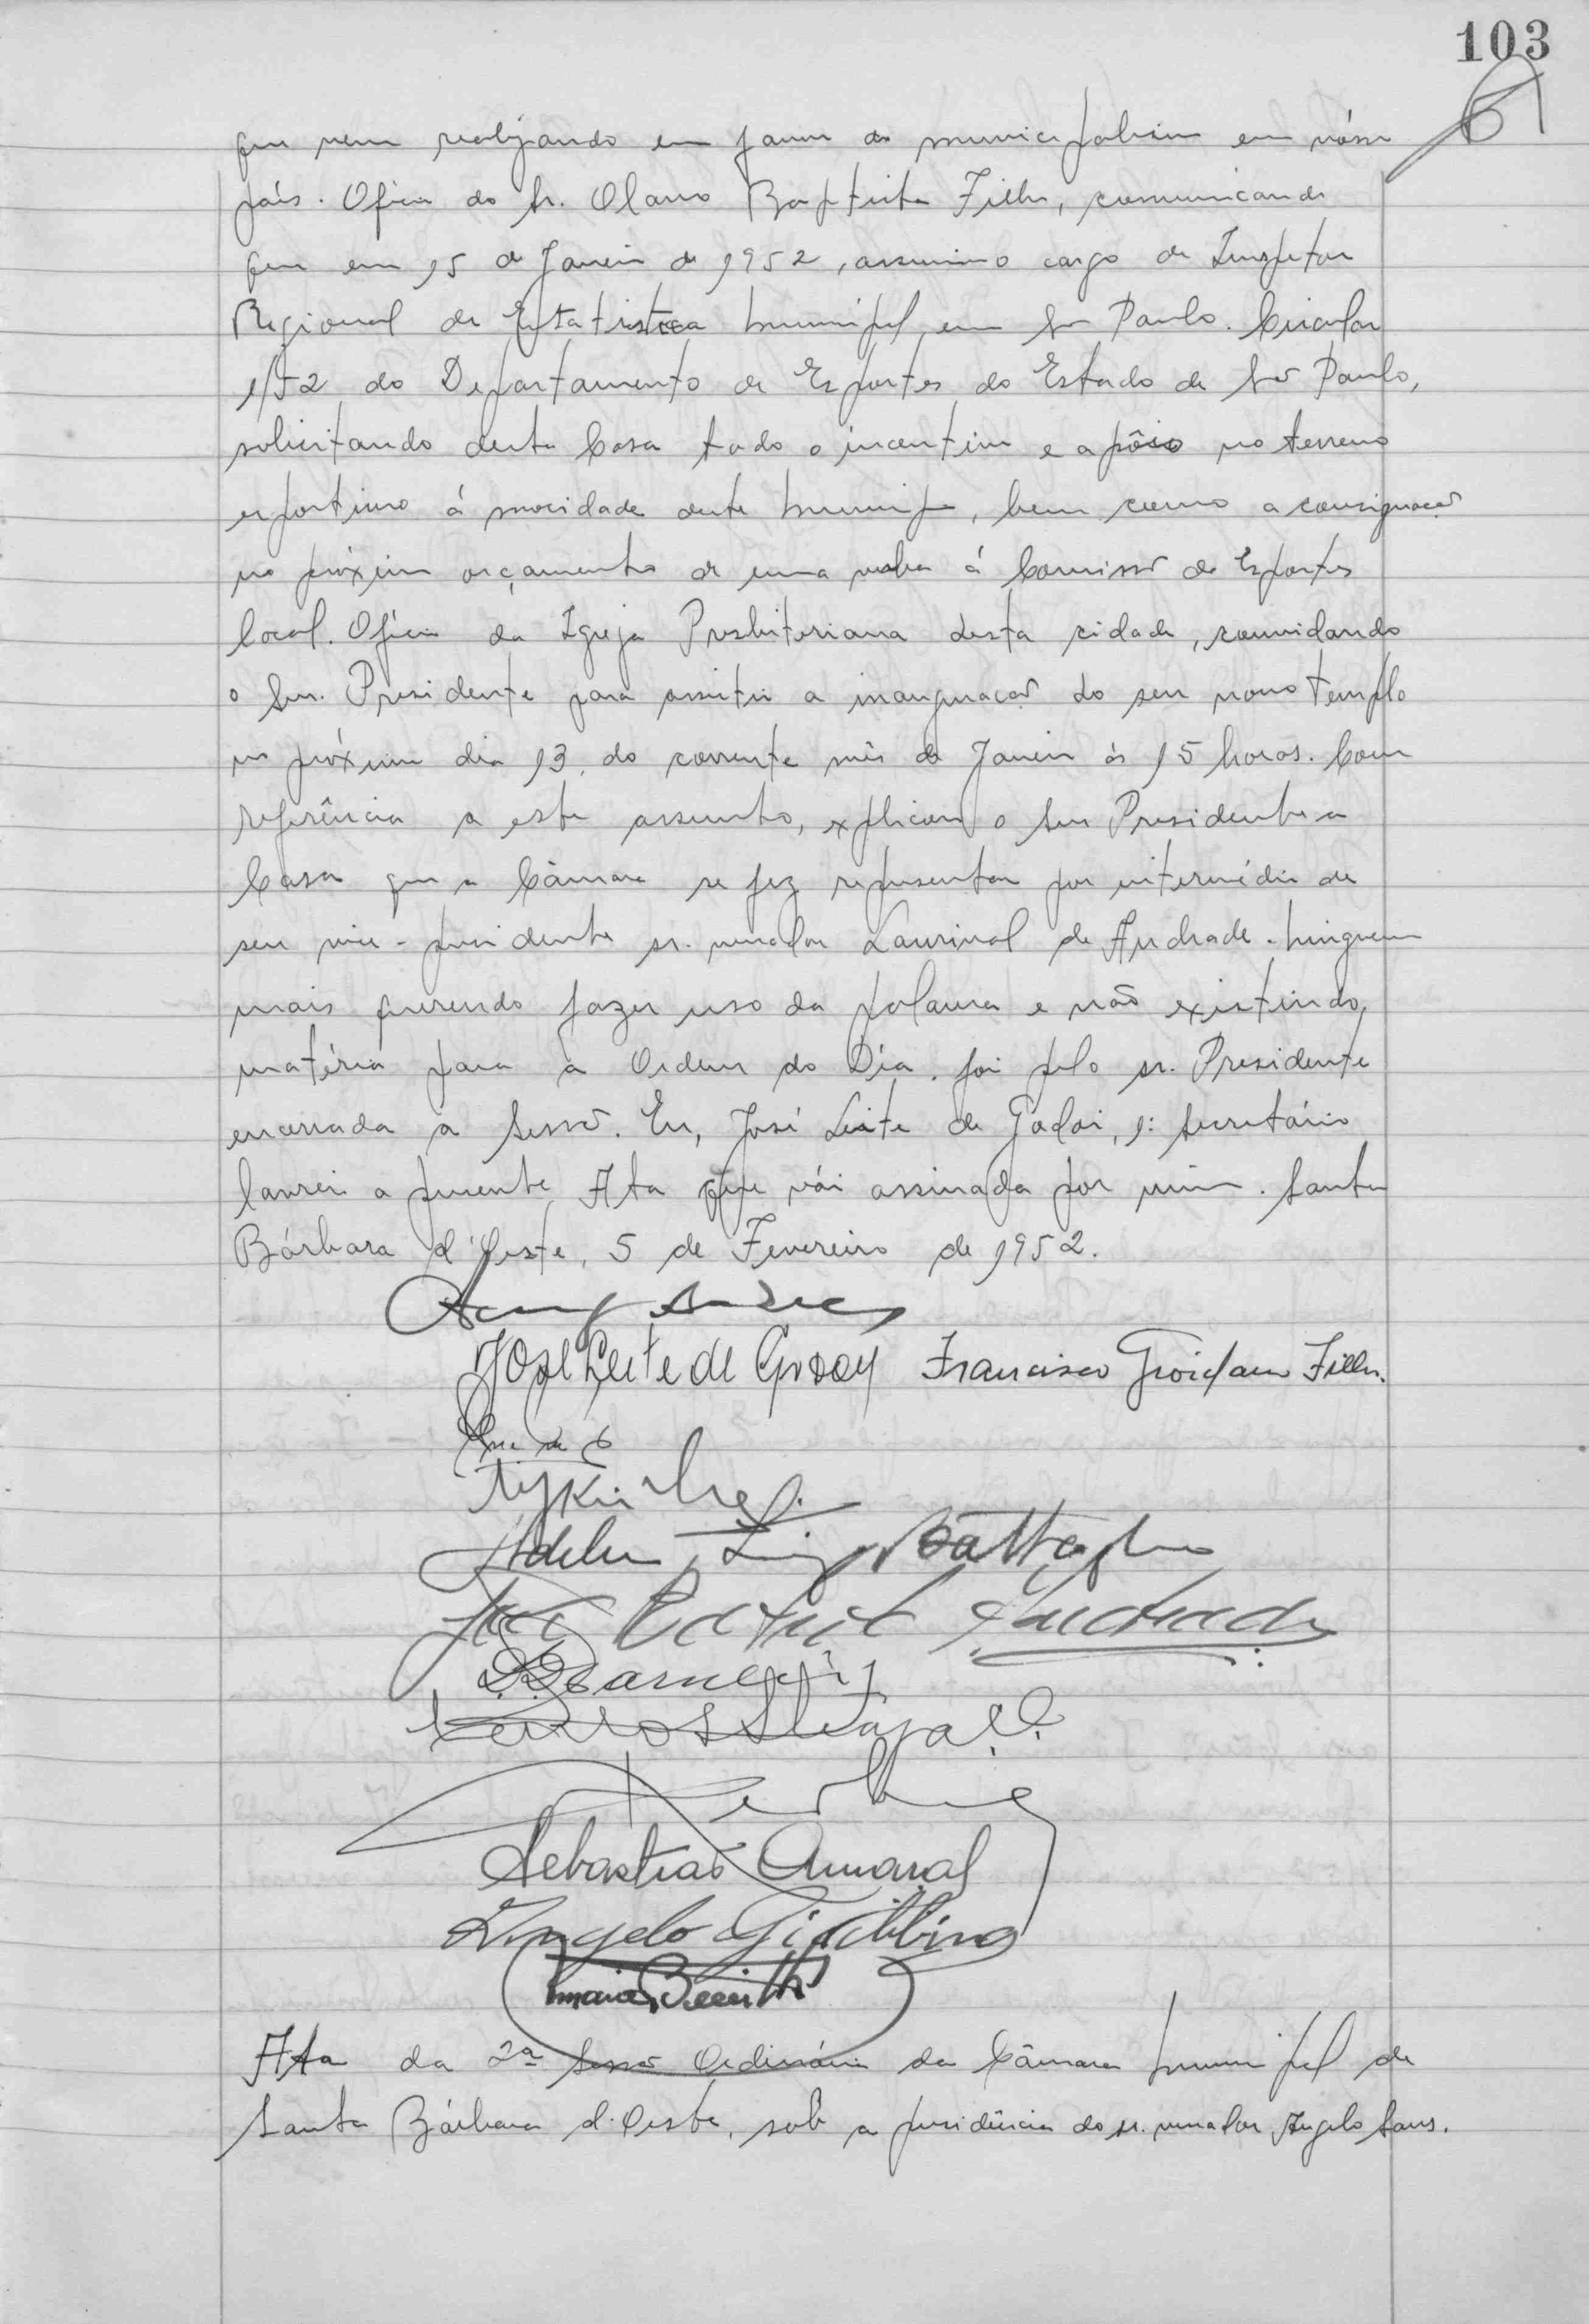 103
que vem realizando em favor do municipalismo em nósso
país. Ofício do Sr. Olavo Baptista Filho, comunicando
que em 15 de Janeiro de 1952, assumiu o cargo de Inspetor
Regional de Estatistica Municipal, em São Paulo. Circular
1/52 do Departamento de Esportes do Estado de São Paulo,
solicitando desta Casa todo o incentivo e apôio no terreno
esportivo á mocidade deste Municipio, bem como a consignação
no próximo orçamento de uma verba á Comissão de Esportes
local. Ofício da Igreja Presbiteriana desta cidade, convidando
o Snr. Presidente para assistir a inauguração do seu novo templo
no próximo dia 13, do corrente mês de Janeiro ás 15 horas. Com
referência a este assunto, explicou o Snr Presidente a
Casa que a Câmara se fez representar por intermédio de
seu vice-presidente sr. vereador Laurival de Andrade. Ninguem
mais querendo fazer uso da palavra e não existindo,
matéria para a Ordem do Dia, foi pelo sr. Presidente
encerrada a Sessão. Eu, José Leite de Godoi, 1º Secretário
lavrei a presente Ata que vái assinada por mim. Santa
Bárbara d'Oeste, 5 de Fevereiro de 1952.
José Leite de Godoy Francisco Groidano Filho.
Luiz Battaglia
Andrade
Sebastião Amaral
Angelo Giubbina
Ata da 2ª Sessão Ordinária da Câmara Municipal de
Santa Bárbara d'Oeste, sob a presidência do sr. vereador Angelo Sans.